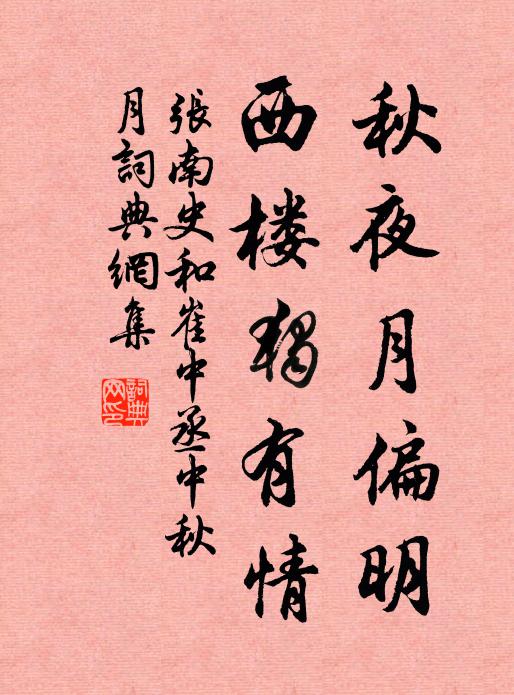 秋夜月偏明
西楼独有情
張南史和崔中丞中秋
月詞典網集
詞典
网印